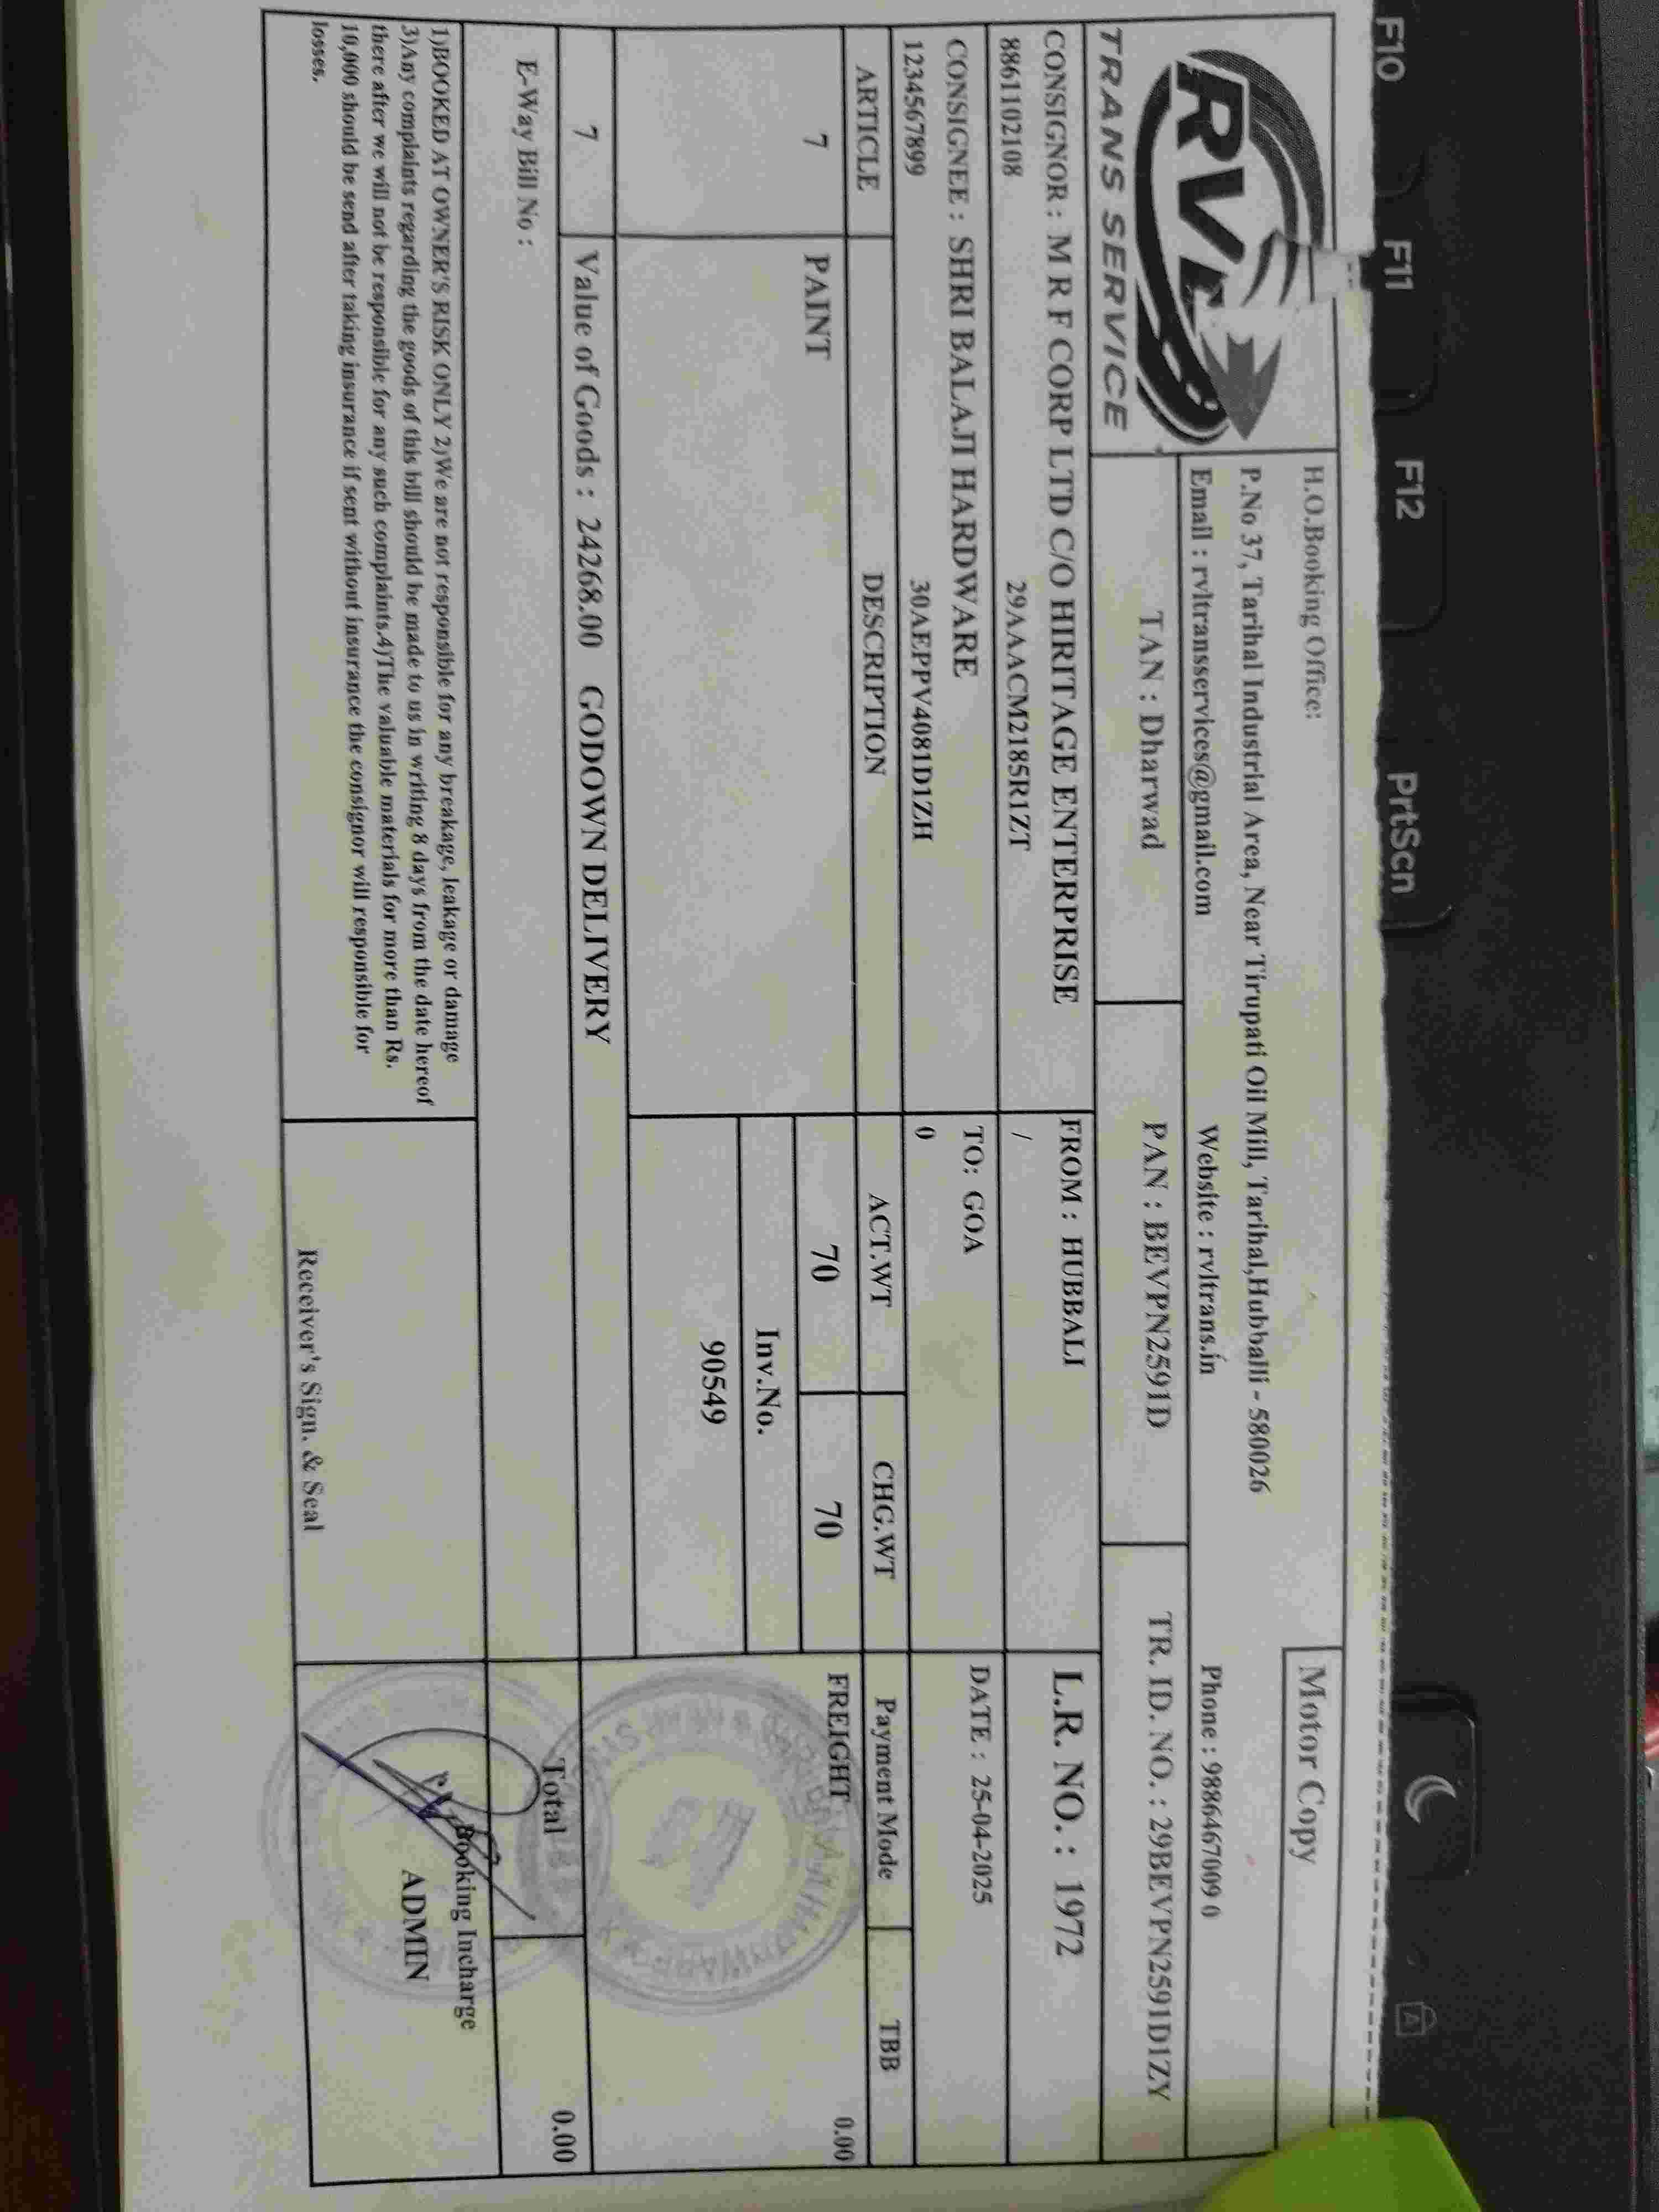 F10 F11 F12 PrtScn
Motor Copy
RVL
TRANS SERVICE
H.O.Booking Office:
P.No 37, Tarihal Industrial Area, Near Tirupati Oil Mill, Tarihal,Hubballi - 580026
Email : rvltransservices@gmail.com Website : rvltrans.in Phone : 9886467009 0
TAN : Dharwad PAN : BEVPN2591D TR. ID. NO. : 29BEVPN2591D1ZY
CONSIGNOR : M R F CORP LTD C/O HIRITAGE ENTERPRISE FROM : HUBBALI L.R. NO. : 1972
8861102108 29AAACM2185R1ZT /
CONSIGNEE : SHRI BALAJI HARDWARE TO: GOA DATE : 25-04-2025
1234567899 30AEPPV4081D1ZH 0
ARTICLE DESCRIPTION ACT.WT CHG.WT Payment Mode TBB
7 PAINT 70 70 FREIGHT 0.00
Inv.No.
90549
7 Value of Goods : 24268.00 GODOWN DELIVERY
E-Way Bill No : Total 0.00
1)BOOKED AT OWNER'S RISK ONLY 2)We are not responsible for any breakage, leakage or damage
3)Any complaints regarding the goods of this bill should be made to us in writing 8 days from the date hereof
there after we will not be responsible for any such complaints.4)The valuable materials for more than Rs.
10,000 should be send after taking insurance if sent without insurance the consignor will responsible for
losses.
Receiver's Sign. & Seal
Booking Incharge
ADMIN